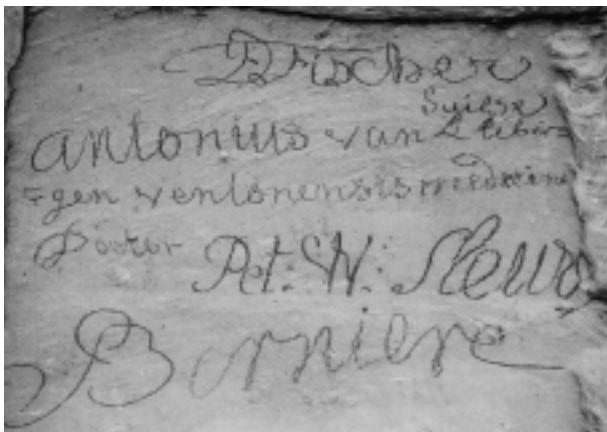 Fischer
Suisse
antonius van
gen venlonensis medicine
Doctor Pet: W:
Borniere